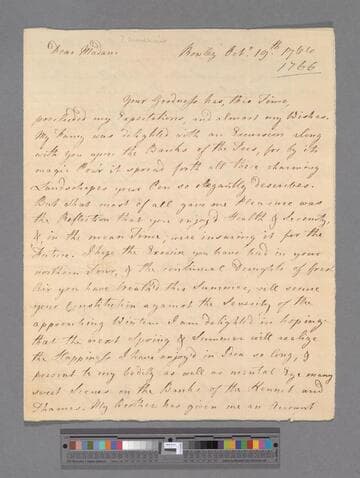 Dear Madam
Bewley Oct.r 19th 1766
1766
Your Goodness has, this Time,
precluded my Expectations, and almost my Wishes.
My Fancy was delighted with an Excursion along
with you upon the Banks of the Tees, for by its
magic Pow'r it spread forth all those charming
Landschapes your Pen so elegantly describes.
But what most of all gave me Pleasure was
the Reflection that you enjoy'd Health & Serenity,
& in the mean Time, were insuring it for the
Future. I hope the Exercise you have used in your
northern Tour, & the continual Draughts of fresh
Air you have breathed this Summer, will secure
your Constitution against the Severity of the
approaching Winter. I am delighted in hoping
that the next Spring & Summer will realize
the Happiness I have enjoy'd in Idea so long, &
present to my bodily as well as mental Eye many
sweet Scenes on the Banks of the Kennet and
Thames. My Brother has given me an Account